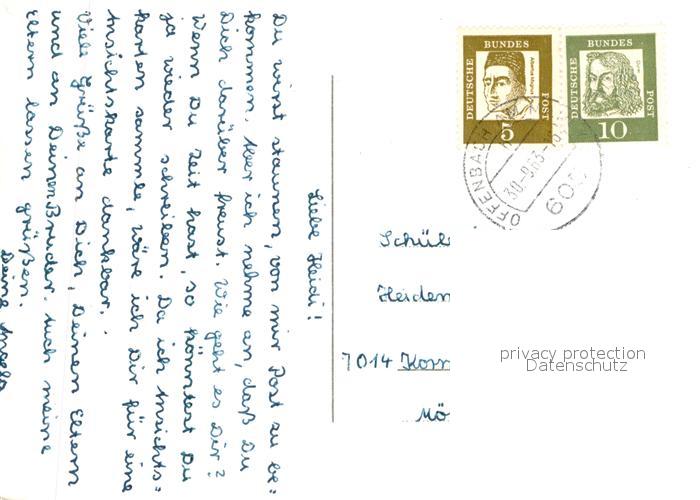 Liebe Heidi!
Du wirst staunen, von mir Post zu be=
kommen. Aber ich nehme an, daß Du
Dich darüber freust. Wie geht es Dir?
Wenn Du Zeit hast, so könntest Du
ja wieder schreiben. Da ich Ansichts=
karten sammle, wäre ich Dir für eine
Ansichtskarte dankbar.
Viele Grüße an Dich, Deinen Eltern
und an Deinen Bruder. Auch meine
Eltern lassen grüßen.
Deine Angela
DEUTSCHE BUNDES POST
Albertus Magnus
5
DEUTSCHE BUNDES POST
Dürer
10
OFFENBACH
30.-9.63
605
Schül
Heiden
7014 Korn
Mö
privacy protection
Datenschutz